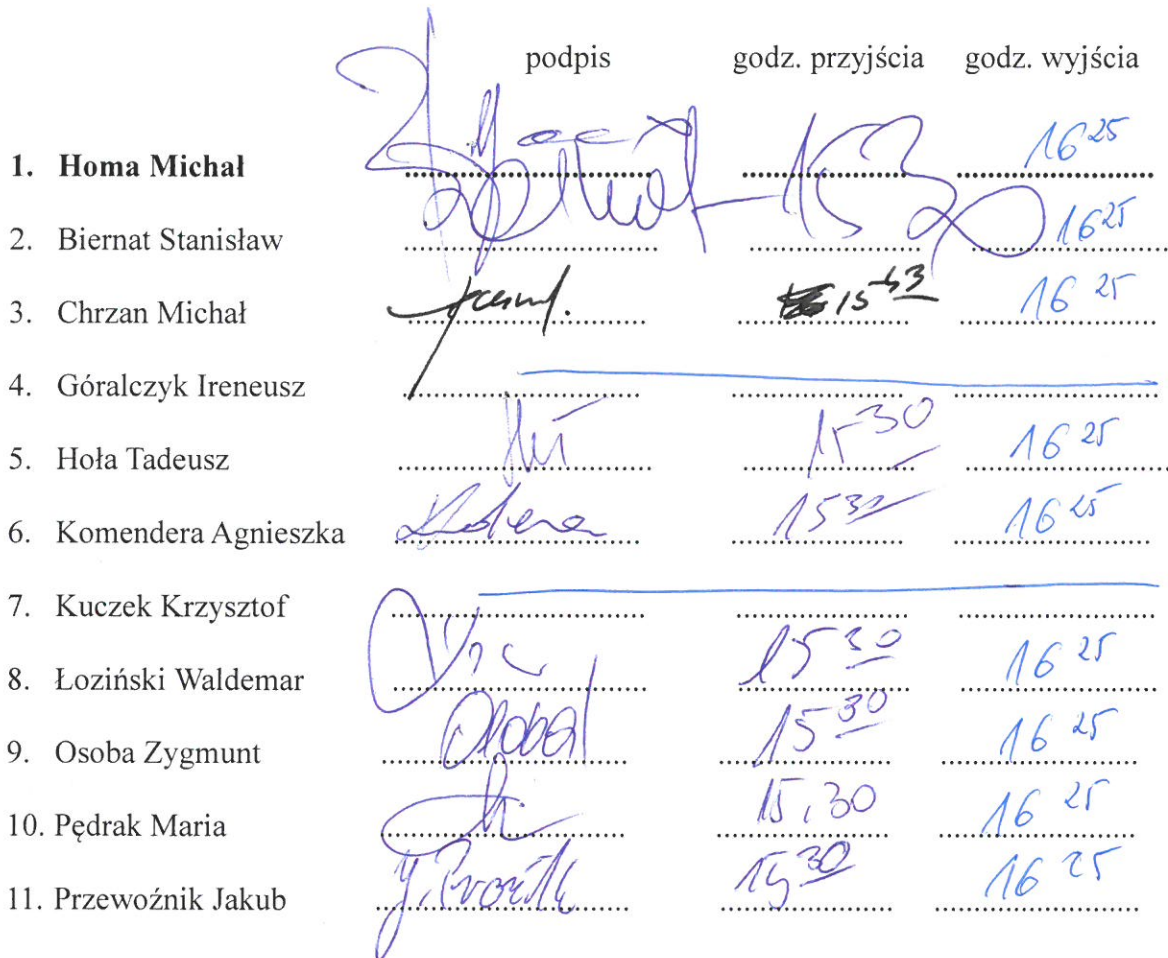 podpis godz. przyjścia godz. wyjścia
1. Homa Michał 16 25
2. Biernat Stanisław 1530 16 25
3. Chrzan Michał 15 43 16 25
4. Góralczyk Ireneusz
5. Hoła Tadeusz 15 30 16 25
6. Komendera Agnieszka 15 30 16 25
7. Kuczek Krzysztof
8. Łoziński Waldemar 15 30 16 25
9. Osoba Zygmunt Osoba 15 30 16 25
10. Pędrak Maria 15,30 16 25
11. Przewoźnik Jakub 15 30 16 25